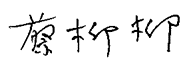 蔡柳柳